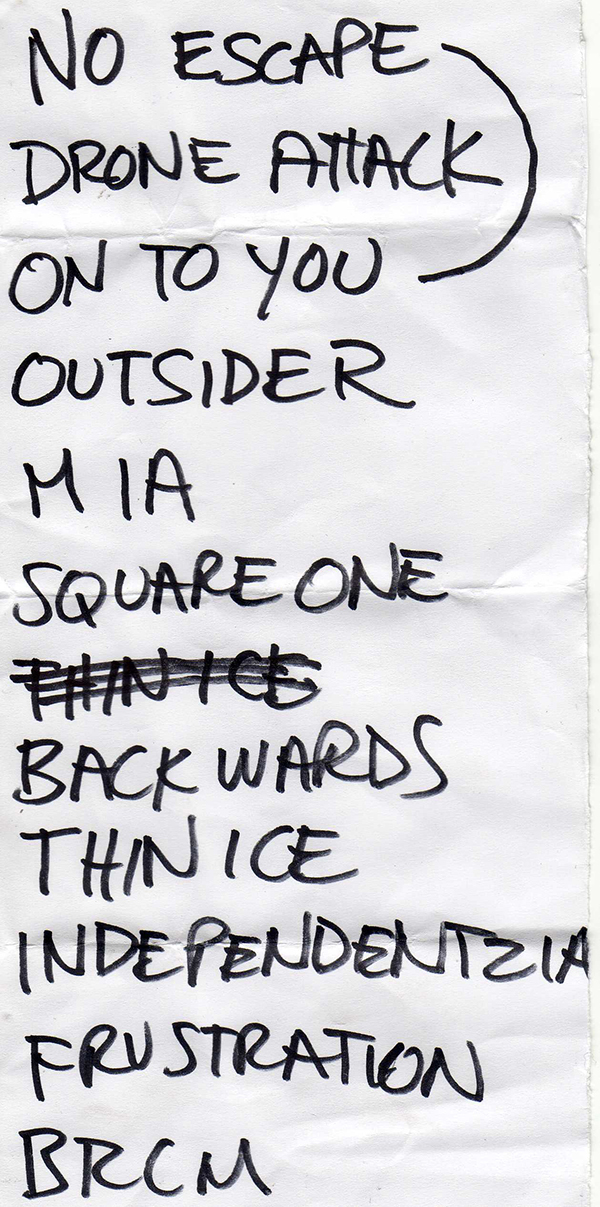 NO ESCAPE
DRONE ATTACK
ON TO YOU
OUTSIDER
MIA
SQUARE ONE
THIN ICE
BACKWARDS
THIN ICE
INDEPENDENTZIA
FRUSTRATION
BRCM